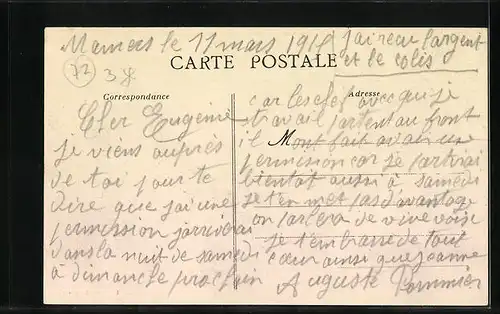 Mamers le 11 mars 191
j'ai reçu l'argent
et le colis
72
3f
CARTE POSTALE
Correspondance
Adresse
Cher Eugénie
je viens auprès
de toi pour te
dire que j'ai une
permission j'arriverai
dans la nuit de samedi
à dimanche prochain
car les chefs avec qui je
travail partent au front
il M ont fait avoir une
permission car je partirai
bientôt aussi à samedi
je t'en met pas davantage
on parlera de vive voise
je t'embrasse de tout
cœur ainsi que Jeanne
Auguste Pommier